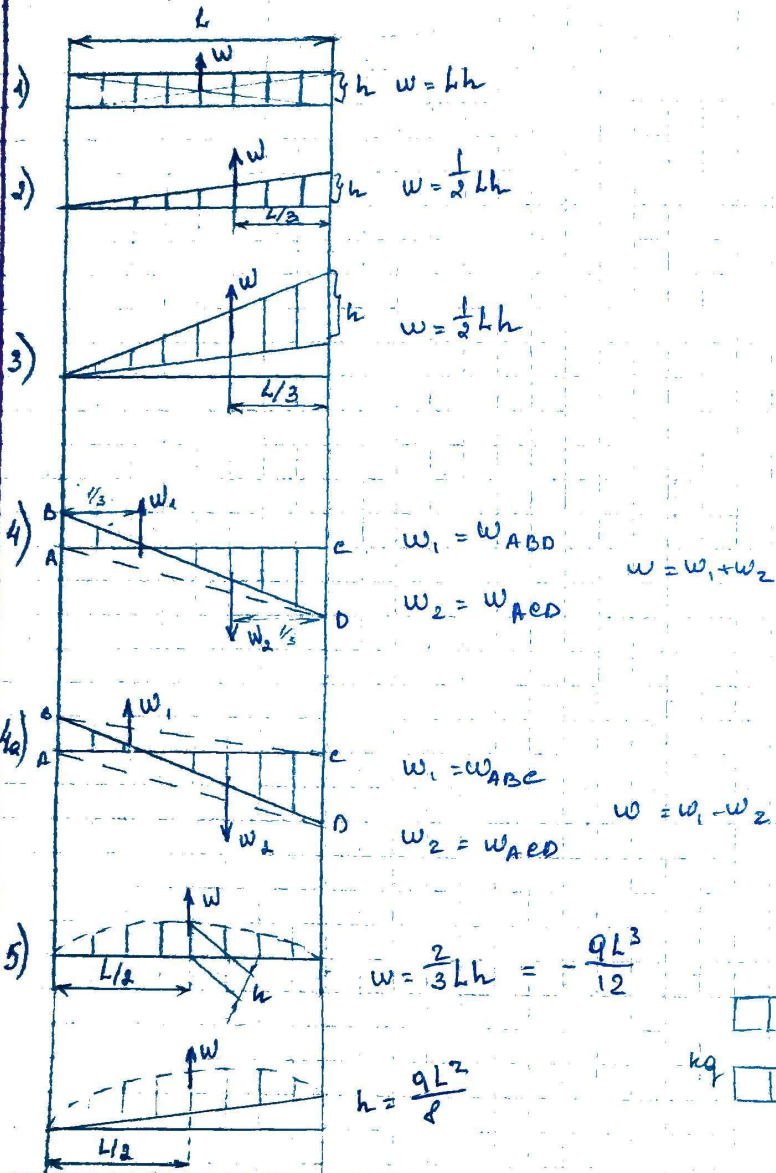 L
1) W h w = Lh
2) W h w = 1/2 Lh
L/3
3) W h w = 1/2 Lh
L/3
4) B A C D L/3 W₁ w₁ = w_ABD
W₂ L/3 w₂ = w_ACD w = w₁ + w₂
4a) B A C D W₁ w₁ = w_ABC
W₂ w₂ = w_ACD w = w₁ - w₂
5) W L/2 h w = 2/3 Lh = - qL³/12
W h = qL²/8
L/2